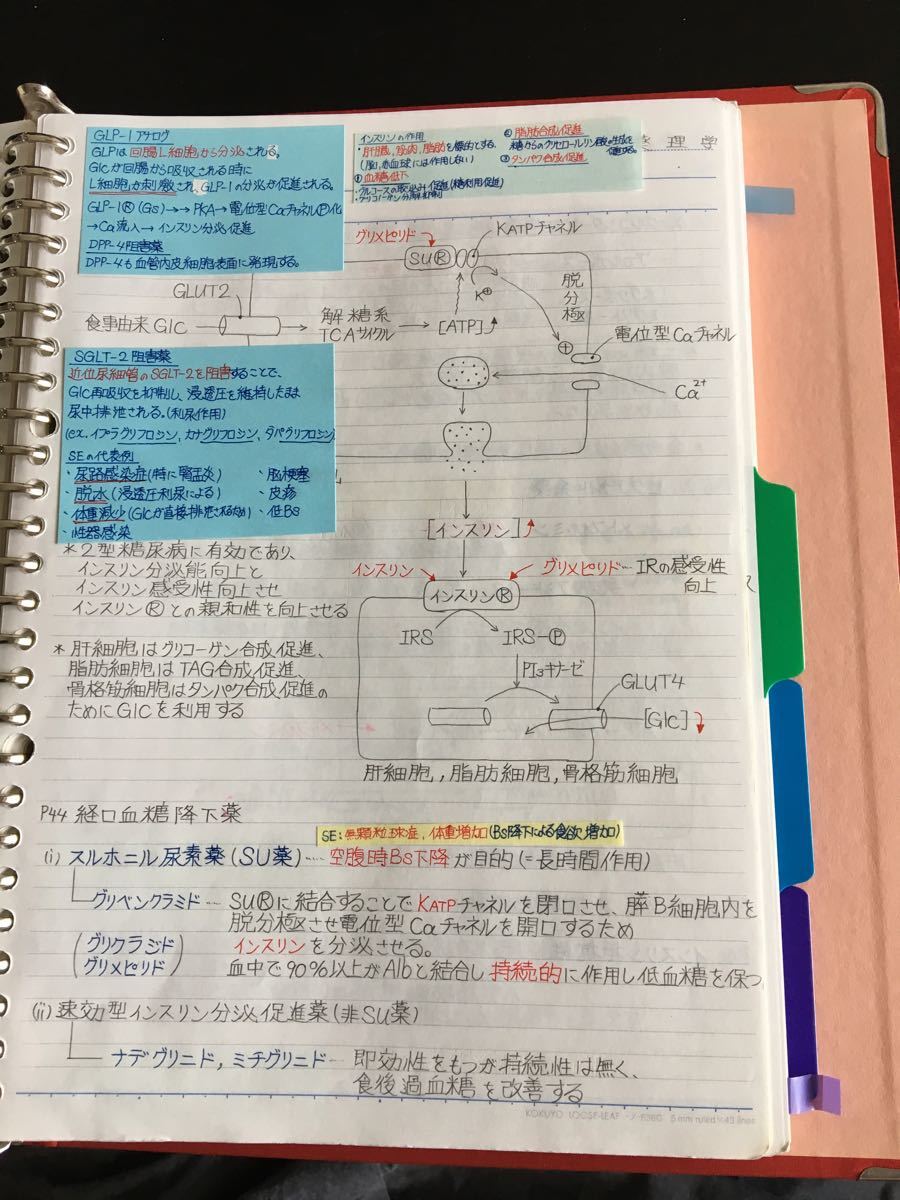 GLP-1アナログ
GLPは回腸L細胞から分泌される。
Glcが回腸から吸収される時に
L細胞が刺激され、GLP-1の分泌が促進される。
GLP-1Ⓡ(Gs)→→PKA→電位型CaチャネルⓅ化
→Ca流入→インスリン分泌促進
DPP-4阻害薬
DPP-4も血管内皮細胞表面に発現する。
インスリンの作用
・肝臓、筋肉、脂肪を標的とする。
(脳、赤血球には作用しない)
①血糖低下
・グルコースの取込み促進(糖利用促進)
・グリコーゲン分解抑制
②脂肪合成促進
糖からのグリセロールリン酸の生成を
③タンパク合成促進
薬理学
グリメピリド
SUⓇ
KATPチャネル
K⊕
脱分極
GLUT2
食事由来Glc
解糖系
TCAサイクル
[ATP]
⊕
電位型Caチャネル
Ca²⁺
SGLT-2阻害薬
近位尿細管のSGLT-2を阻害することで、
Glc再吸収を抑制し、浸透圧を維持したまま
尿中排泄される。(利尿作用)
(ex.イプラグリフロシン、カナグリフロシン、ダパグリフロシン)
SEの代表例
・尿路感染症(特に腎盂炎)
・脳梗塞
・脱水(浸透圧利尿による)
・皮疹
・体重減少(Glcが直接排泄されるため)
・低BS
・性器感染
[インスリン]
＊2型糖尿病に有効であり、
インスリン分泌能向上と
インスリン感受性向上させ
インスリンⓇとの親和性を向上させる
インスリン
グリメピリド…IRの感受性
向上
インスリンⓇ
IRS
IRS-Ⓟ
PI₃キナーゼ
GLUT4
[Glc]
＊肝細胞はグリコーゲン合成促進、
脂肪細胞はTAG合成促進、
骨格筋細胞はタンパク合成促進の
ためにGlcを利用する
肝細胞,脂肪細胞,骨格筋細胞
P44 経口血糖降下薬
SE:無顆粒球症、体重増加(BS降下による食欲増加)
(i) スルホニル尿素薬(SU薬)……空腹時BS下降が目的(=長時間作用)
グリベンクラミド…SUⓇに結合することでKATPチャネルを閉口させ、膵B細胞内を
脱分極させ電位型Caチャネルを開口するため
(グリクラジド
インスリンを分泌させる。
グリメピリド)
血中で90%以上がAlbと結合し持続的に作用し低血糖を保つ
(ii) 速効型インスリン分泌促進薬(非SU薬)
ナテグリニド,ミチグリニド…即効性をもつが持続性は無く、
食後過血糖を改善する
KOKUYO LOOSE-LEAF ノ-836C 6 mm ruled×43 lines